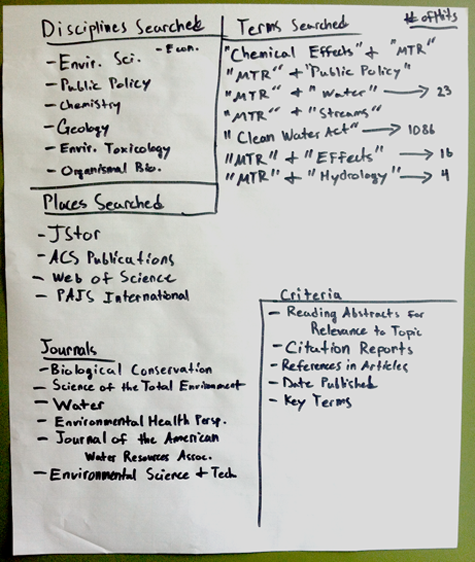 Disciplines Searched
- Econ.
- Envir. Sci.
- Public Policy
- Chemistry
- Geology
- Envir. Toxicology
- Organismal Bio.
Terms Searched
# of Hits
"Chemical Effects" + "MTR"
"MTR" + "Public Policy"
"MTR" + "Water" → 23
"MTR" + "Streams"
"Clean Water Act" → 1086
"MTR" + "Effects" → 16
"MTR" + "Hydrology" → 4
Places Searched
- JStor
- ACS Publications
- Web of Science
- PAIS International
Journals
- Biological Conservation
- Science of the Total Environment
- Water
- Environmental Health Persp.
- Journal of the American
Water Resources Assoc.
- Environmental Science + Tech
Criteria
- Reading Abstracts for
Relevance to Topic
- Citation Reports
- References in Articles
- Date Published
- Key Terms